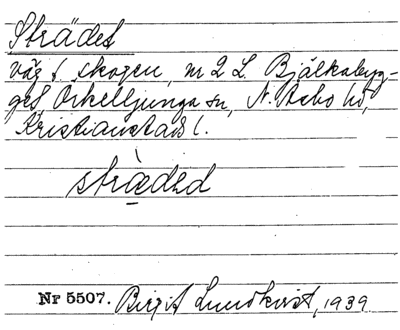 Strädet
väg i skogen, nr 2 L. Bjälkabyg-
get, Örkelljunga sn, N. Åsbo hd,
Kristianstads l.
strædəd
Nr 5507. Birgit Lundkvist, 1939